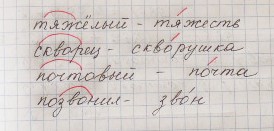 тяжёлый - тя́жесть
скварец - сква́рушка
почтовый - по́чта
позвонил - зво́н